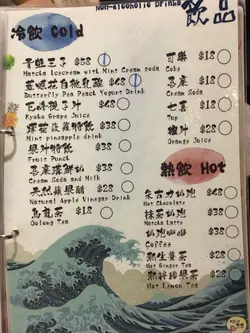 Non-alcoholic Drinks
飲品
冷飲 Cold
青蛙王子 $58
Matcha Icecream with Mint Cream soda
$48
Butterfly Pea Peach Yogurt Drink
$48
Kyoho Grape Juice
薄荷菠蘿特飲 $38
Mint pineapple drink
果汁特飲 $38
Fruit Punch
忌廉溝鮮奶 $38
Cream Soda and Milk
天然蘋果醋 $28
Natural Apple Vinegar Drink
烏龍茶 $18
Oolong Tea
可樂 $18
Coke
忌廉 $18
Cream Soda
七喜 $18
7up
橙汁 $28
Orange Juice
熱飲 Hot
朱古力奶泡 $38
Hot Chocolate
抹茶奶泡 $38
Matcha Latte
奶泡咖啡 $38
Coffee
熱生薑茶 $28
Hot Ginger Tea
熱檸檬茶 $28
Hot Lemon Tea